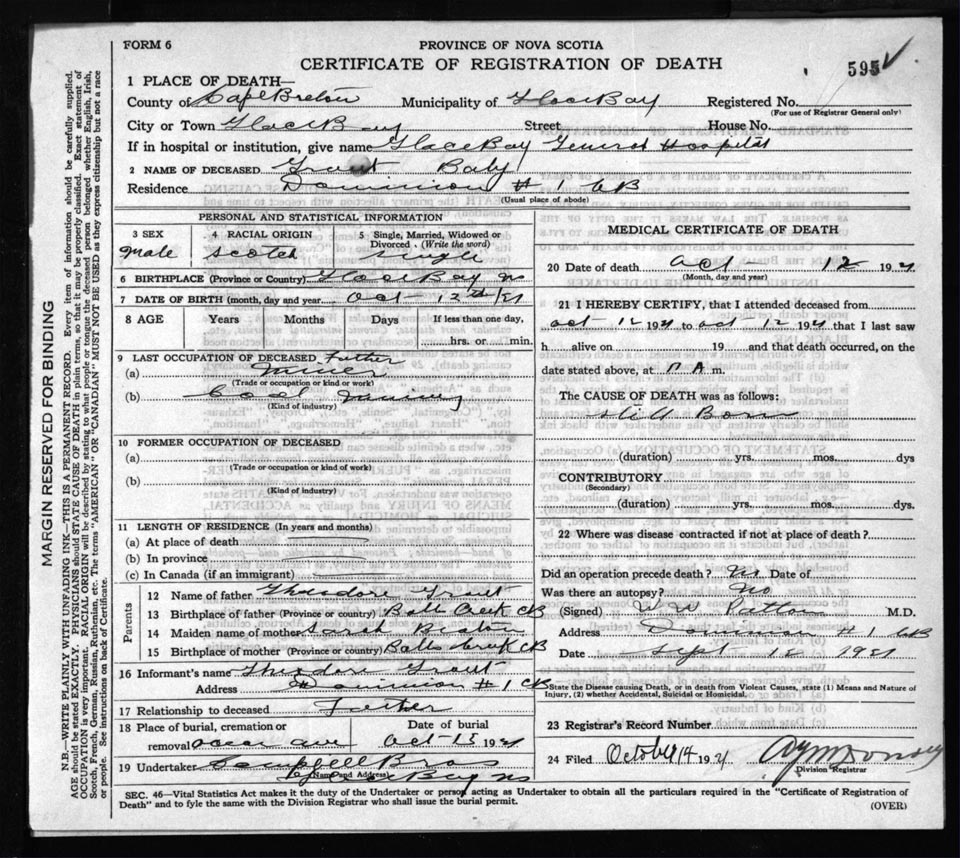 FORM 6
PROVINCE OF NOVA SCOTIA
CERTIFICATE OF REGISTRATION OF DEATH
595
1 PLACE OF DEATH—
County of Cape Breton Municipality of Glace Bay Registered No.
(For use of Registrar General only)
City or Town Glace Bay Street House No.
If in hospital or institution, give name Glace Bay General Hospital
2 NAME OF DECEASED Baby
Residence Dominion # 1 CB
(Usual place of abode)
PERSONAL AND STATISTICAL INFORMATION
3 SEX
Male
4 RACIAL ORIGIN
Scotch
5 Single, Married, Widowed or Divorced (Write the word)
Single
6 BIRTHPLACE (Province or Country) Glace Bay NS
7 DATE OF BIRTH (month, day and year Oct 12th
8 AGE Years Months Days If less than one day,
hrs. or min.
9 LAST OCCUPATION OF DECEASED Father
(a) Miner
(Trade or occupation or kind or work)
(b) Coal Mining
(Kind of industry)
10 FORMER OCCUPATION OF DECEASED
(a)
(Trade or occupation or kind of work)
(b)
(Kind of industry)
11 LENGTH OF RESIDENCE (In years and months)
(a) At place of death
(b) In province
(c) In Canada (if an immigrant)
Parents
12 Name of father Theodore
13 Birthplace of father (Province or Country) Balls Creek CB
14 Maiden name of mother Sarah
15 Birthplace of mother (Province or Country) Balls Creek CB
16 Informant's name Theodore
Address Dominion # 1 CB
17 Relationship to deceased Father
18 Place of burial, cremation or removal
Date of burial
Oct 15 19
19 Undertaker Campbell Bros
(Name and Address)
Glace Bay NS
MEDICAL CERTIFICATE OF DEATH
20 Date of death Oct 12 19
(Month, day and year)
21 I HEREBY CERTIFY, that I attended deceased from
Oct 12 19 to Oct 12 19 that I last saw
h alive on 19 and that death occurred, on the
date stated above, at A m.
The CAUSE OF DEATH was as follows:
Still Born
(duration) yrs. mos. dys
CONTRIBUTORY
(Secondary)
(duration) yrs. mos. dys
22 Where was disease contracted if not at place of death?
Did an operation precede death? No Date of
Was there an autopsy? No
(Signed) M.D.
Address Dominion # 1 CB
Date Sept 12
State the Disease causing Death, or in death from Violent Causes, state (1) Means and Nature of Injury, (2) whether Accidental, Suicidal or Homicidal.
23 Registrar's Record Number
24 Filed October 14 19
Division Registrar
SEC. 46—Vital Statistics Act makes it the duty of the Undertaker or person acting as Undertaker to obtain all the particulars required in the "Certificate of Registration of
Death" and to fyle the same with the Division Registrar who shall issue the burial permit.
(OVER)
MARGIN RESERVED FOR BINDING
N.B.—WRITE PLAINLY WITH UNFADING INK—THIS IS A PERMANENT RECORD. Every item of information should be carefully supplied.
AGE should be stated EXACTLY. PHYSICIANS should STATE CAUSE OF DEATH in plain terms, so that it may be properly classified. Exact statement of
OCCUPATION is very important. RACIAL ORIGIN will be described by stating to what people or tongue the deceased person belonged whether English, Irish,
Scotch, French, German, Russian, Ruthenian, etc. The terms "AMERICAN" OR "CANADIAN" MUST NOT BE USED as they express citizenship but not a race
or people. See instructions on back of Certificate.